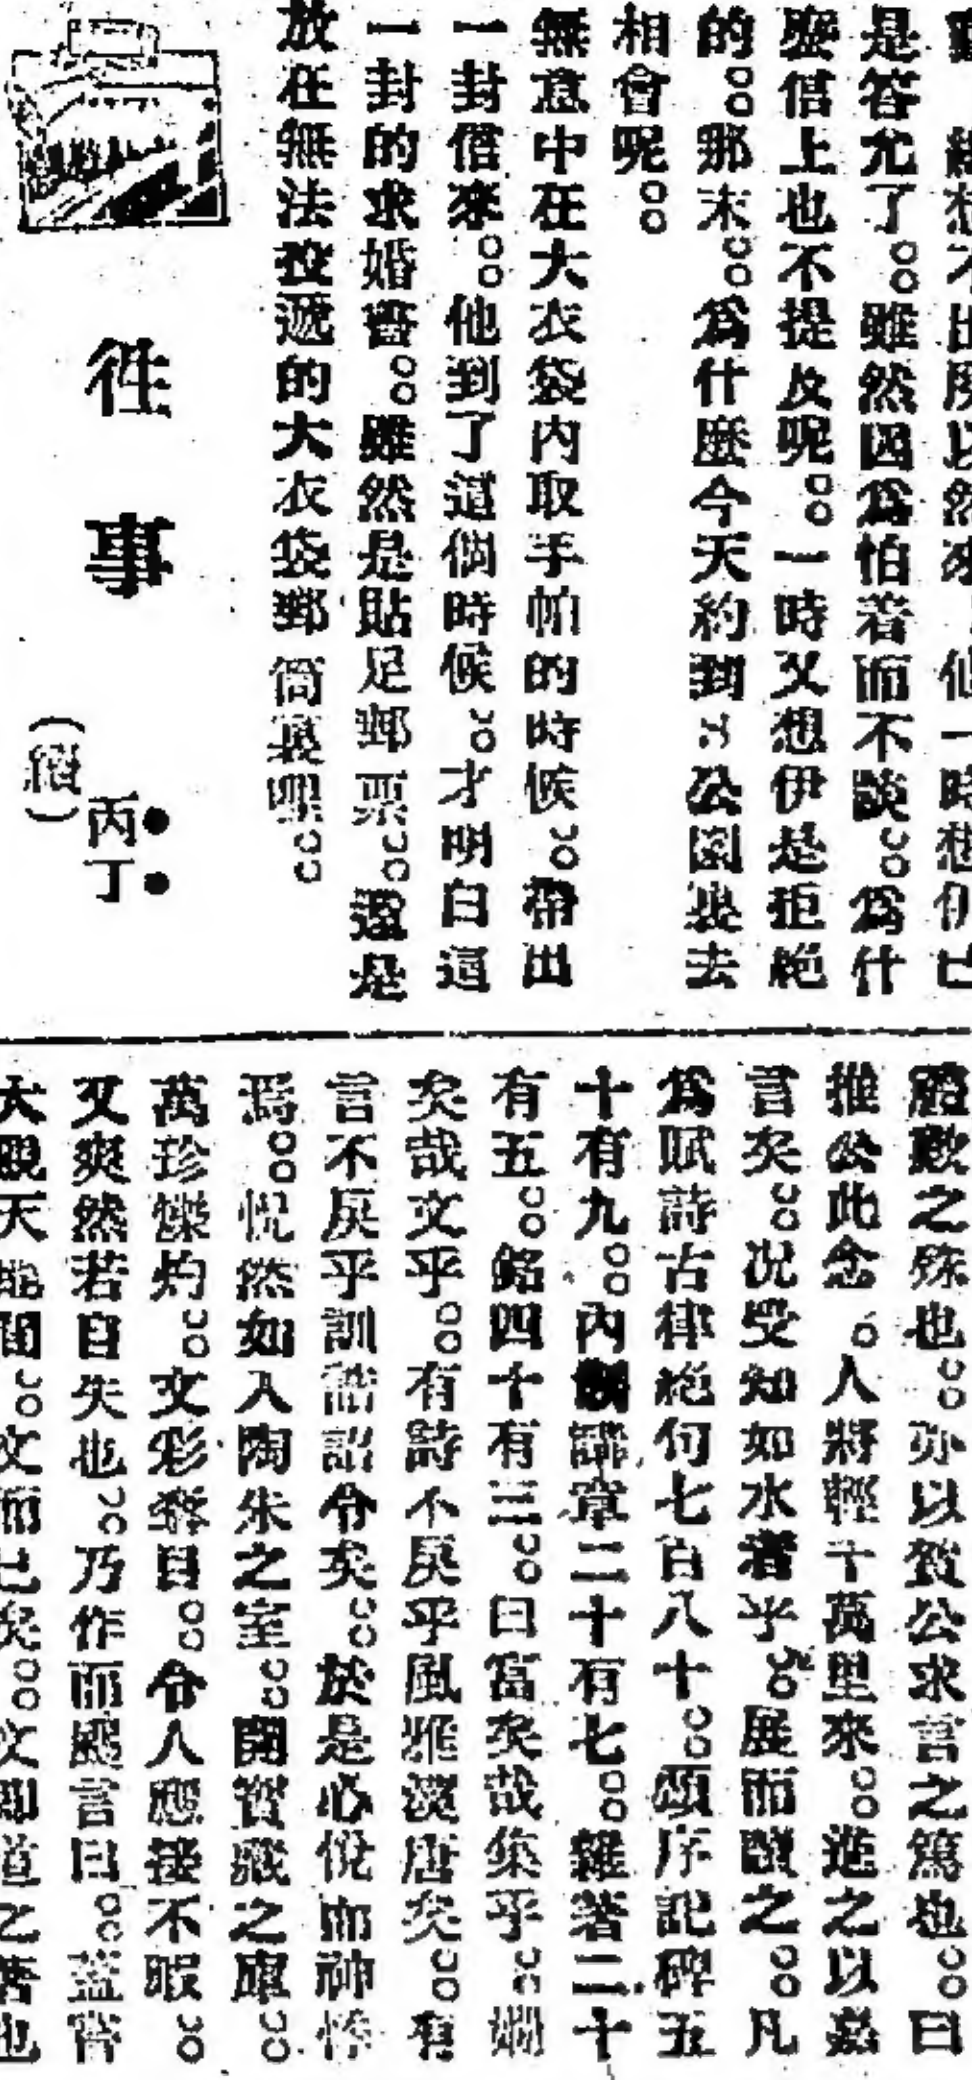 想不出所以然來 他一時想伊已
是答允了。。雖然因為怕着而不談。。為什
麼信上也不提及呢。。一時又想伊是拒絕
的。。那末。。為什麼今天約到 公園裏去
相會呢。。
無意中在大衣袋內取手帕的時候。。帶出
一封信來。。他到了這個時候。。才明白這
一封的求婚書。。雖然是貼足郵票。。還是
放在無法投遞的大衣袋郵筒裏哩。。
往事
丙丁
(續)
殿之殊也。。亦以賀公求言之篤也。。曰
推公此念。。人將輕千萬里來。。進之以嘉
言矣。。況受知如水者乎。。展而讀之。。凡
為賦詩古律絕句七百八十。。頌序記碑五
十有九。。內 講章二十有七。。雜著二十
有五。。銘四十有三。。曰富矣哉集乎。。嫺
矣哉文乎。。有詩不戾乎風雅漢唐矣。。有
言不戾乎訓誥詔令矣。。於是心悅而神怿
焉。。恍然如入陶朱之室。。開寶藏之庫。。
萬珍爍灼。。文彩奪目。。令人應接不暇。。
又爽然若自失也。。乃作而颺言曰。。蓋嘗
大觀天地間。。文而已矣。。文即道之著也